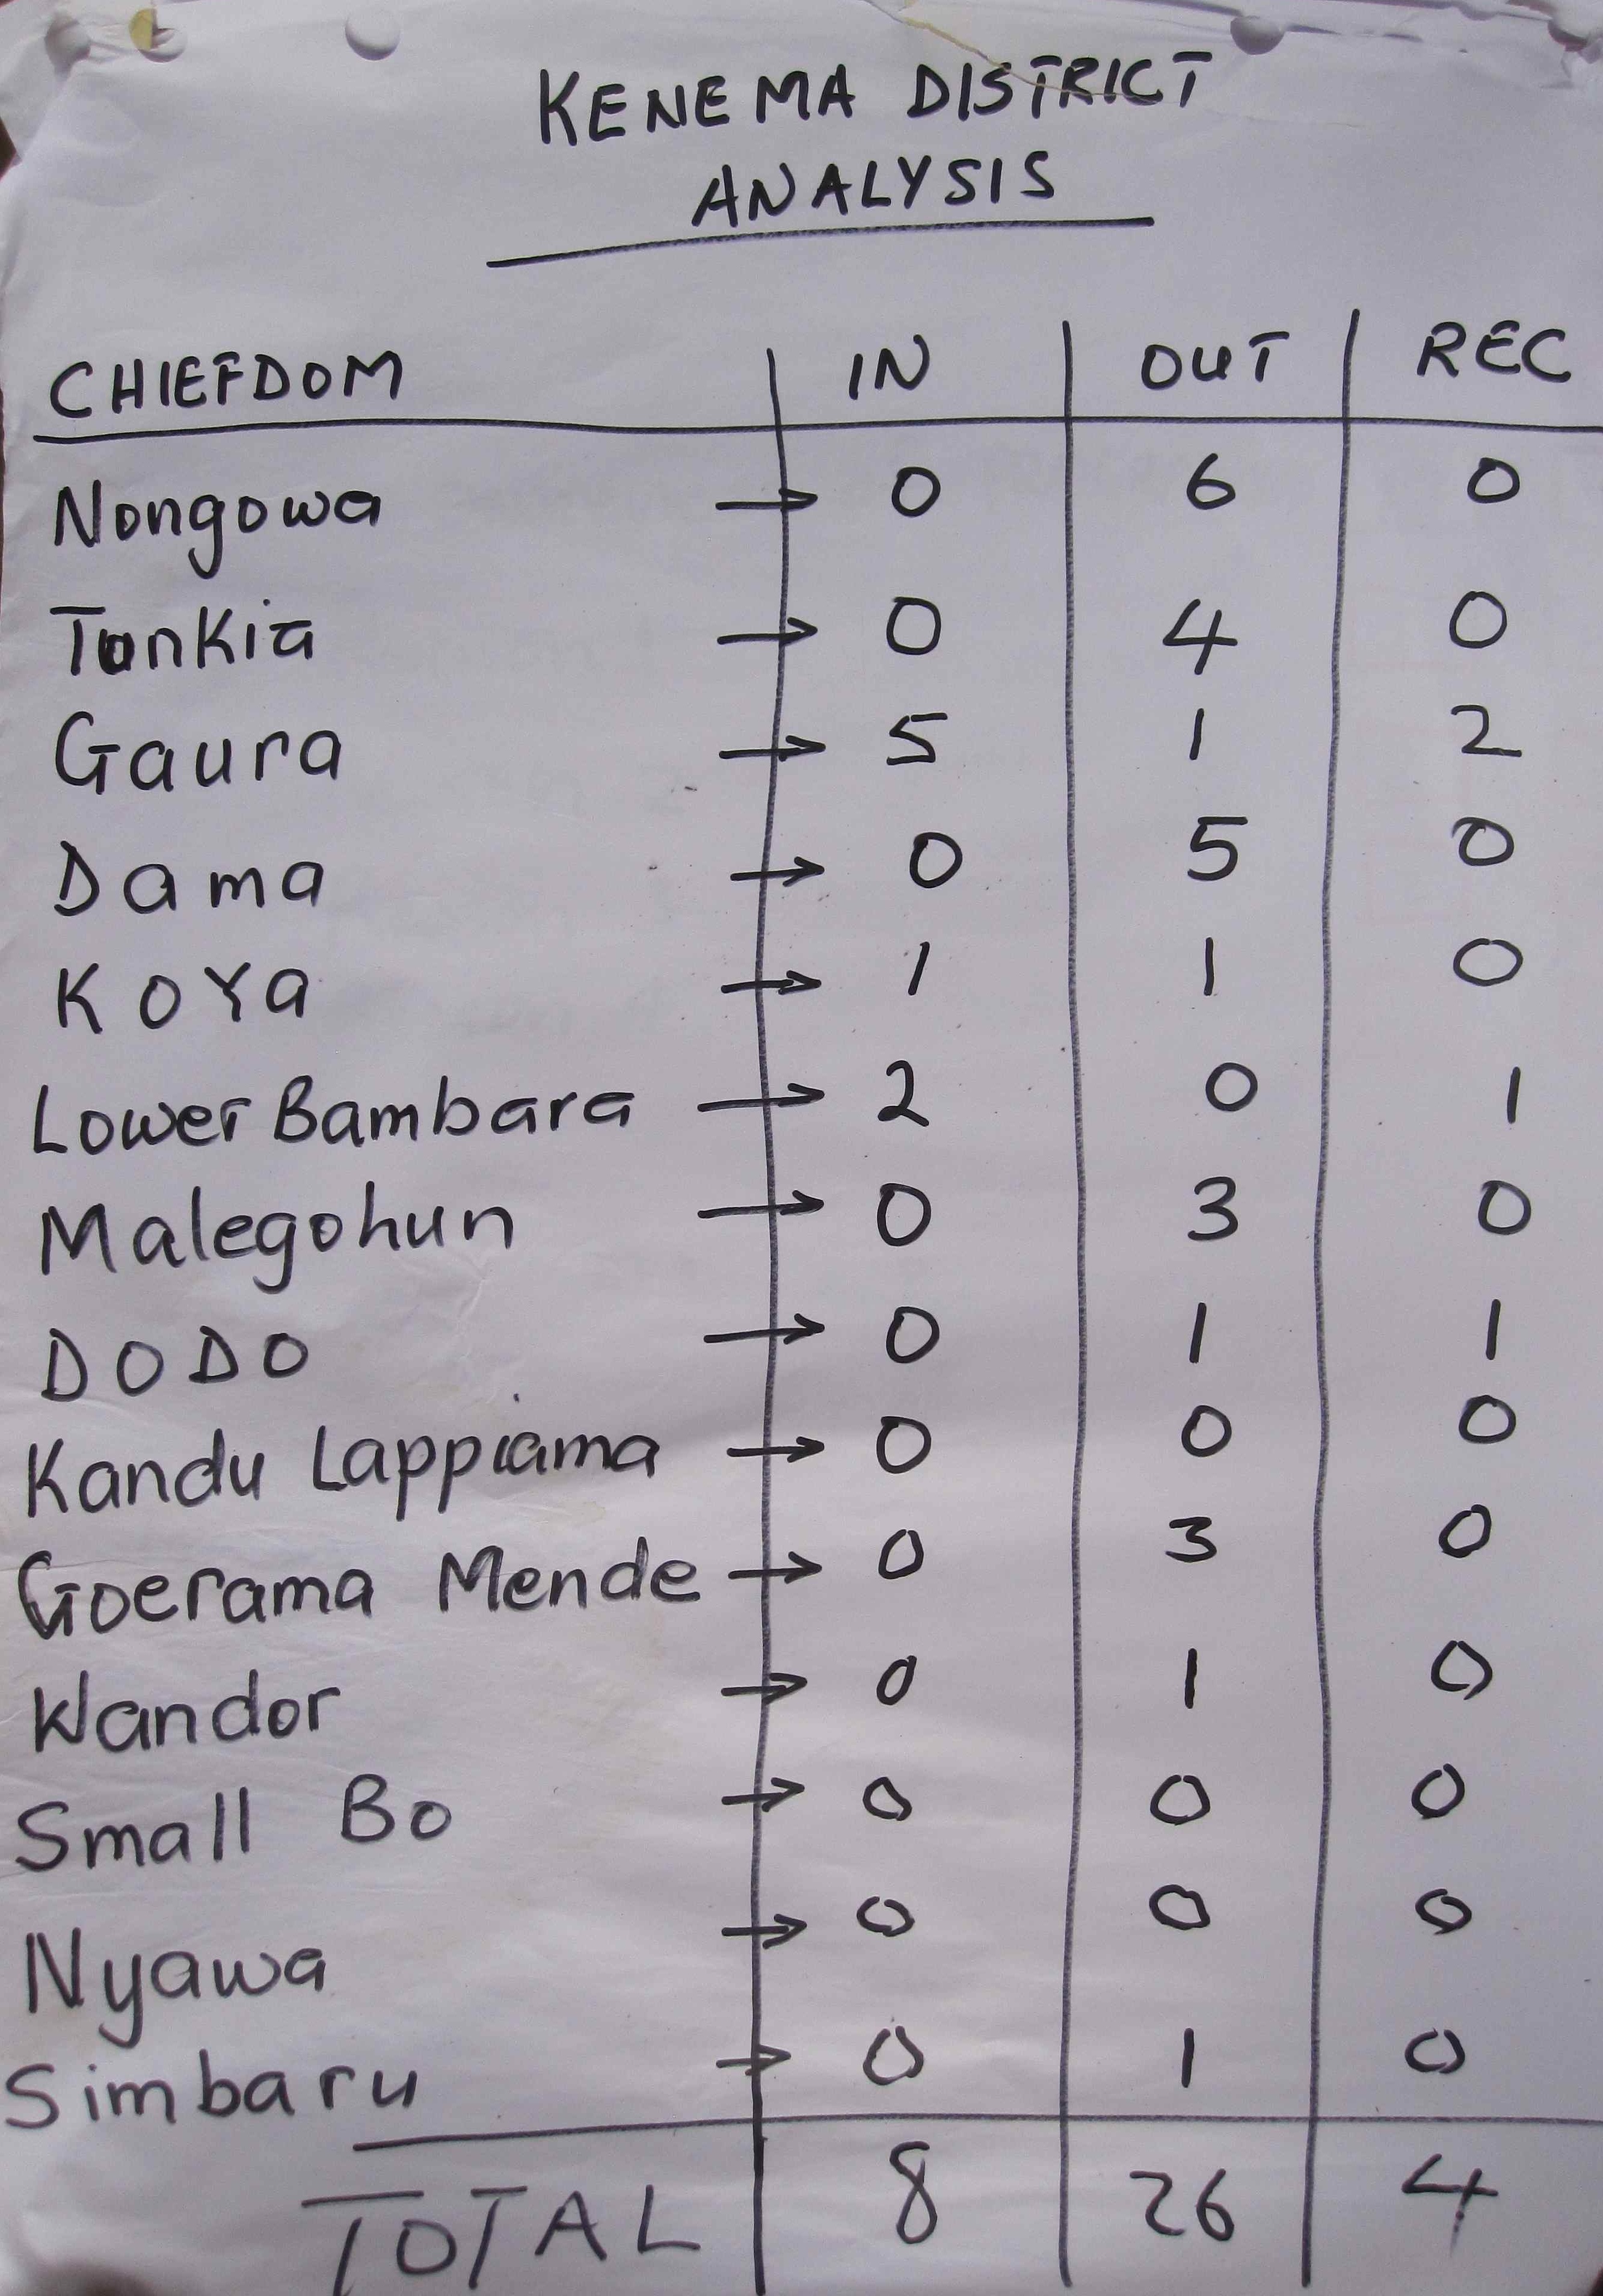 KENEMA DISTRICT
ANALYSIS
CHIEFDOM IN OUT REC
Nongowa → 0 6 0
Tunkia → 0 4 0
Gaura → 5 1 2
Dama → 0 5 0
KOYa → 1 1 0
Lower Bambara → 2 0 1
Malegohun → 0 3 0
DODO → 0 1 1
Kandu Lappiama → 0 0 0
Goerama Mende → 0 3 0
Wandor → 0 1 0
Small Bo → 0 0 0
Nyawa → 0 0 0
Simbaru → 0 1 0
TOTAL 8 26 4